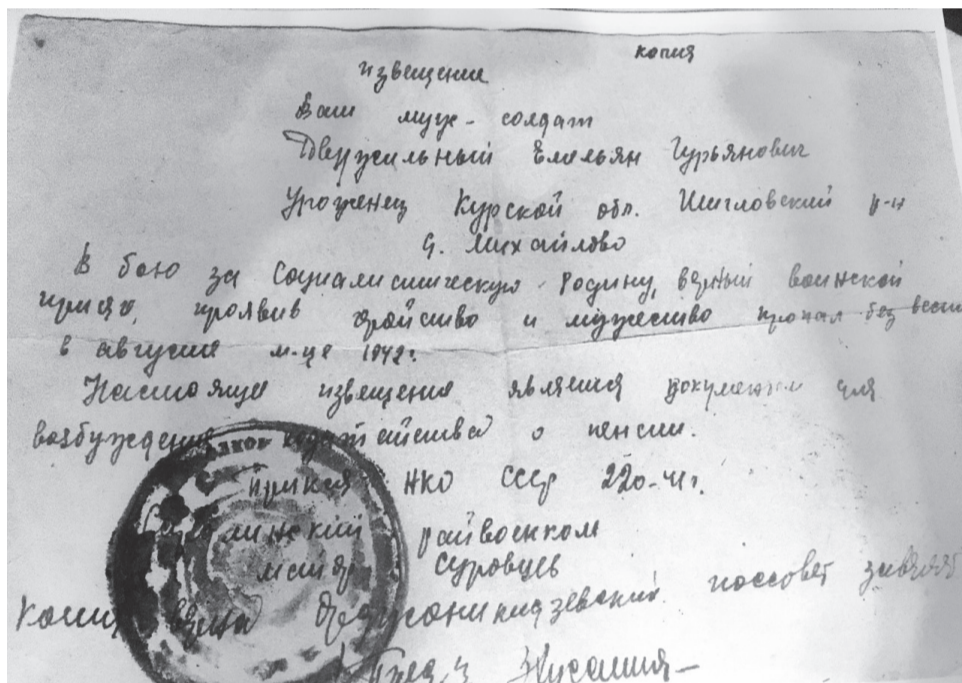 копия
извещение
Ваш муж - солдат
Емельян Гурьянович
Уроженец Курской обл. р-н
с. Михайлово
В бою за Социалистическую Родину, верный воинской
присяге, проявив геройство и мужество пропал без вести
в августе м-це 1942 г.
Настоящее извещение является документом для
возбуждения ходатайства о пенсии.
приказ НКО СССР 220-41 г.
райвоенком
майор Суровцев
Копия верна Орджоникидзевский поссовет